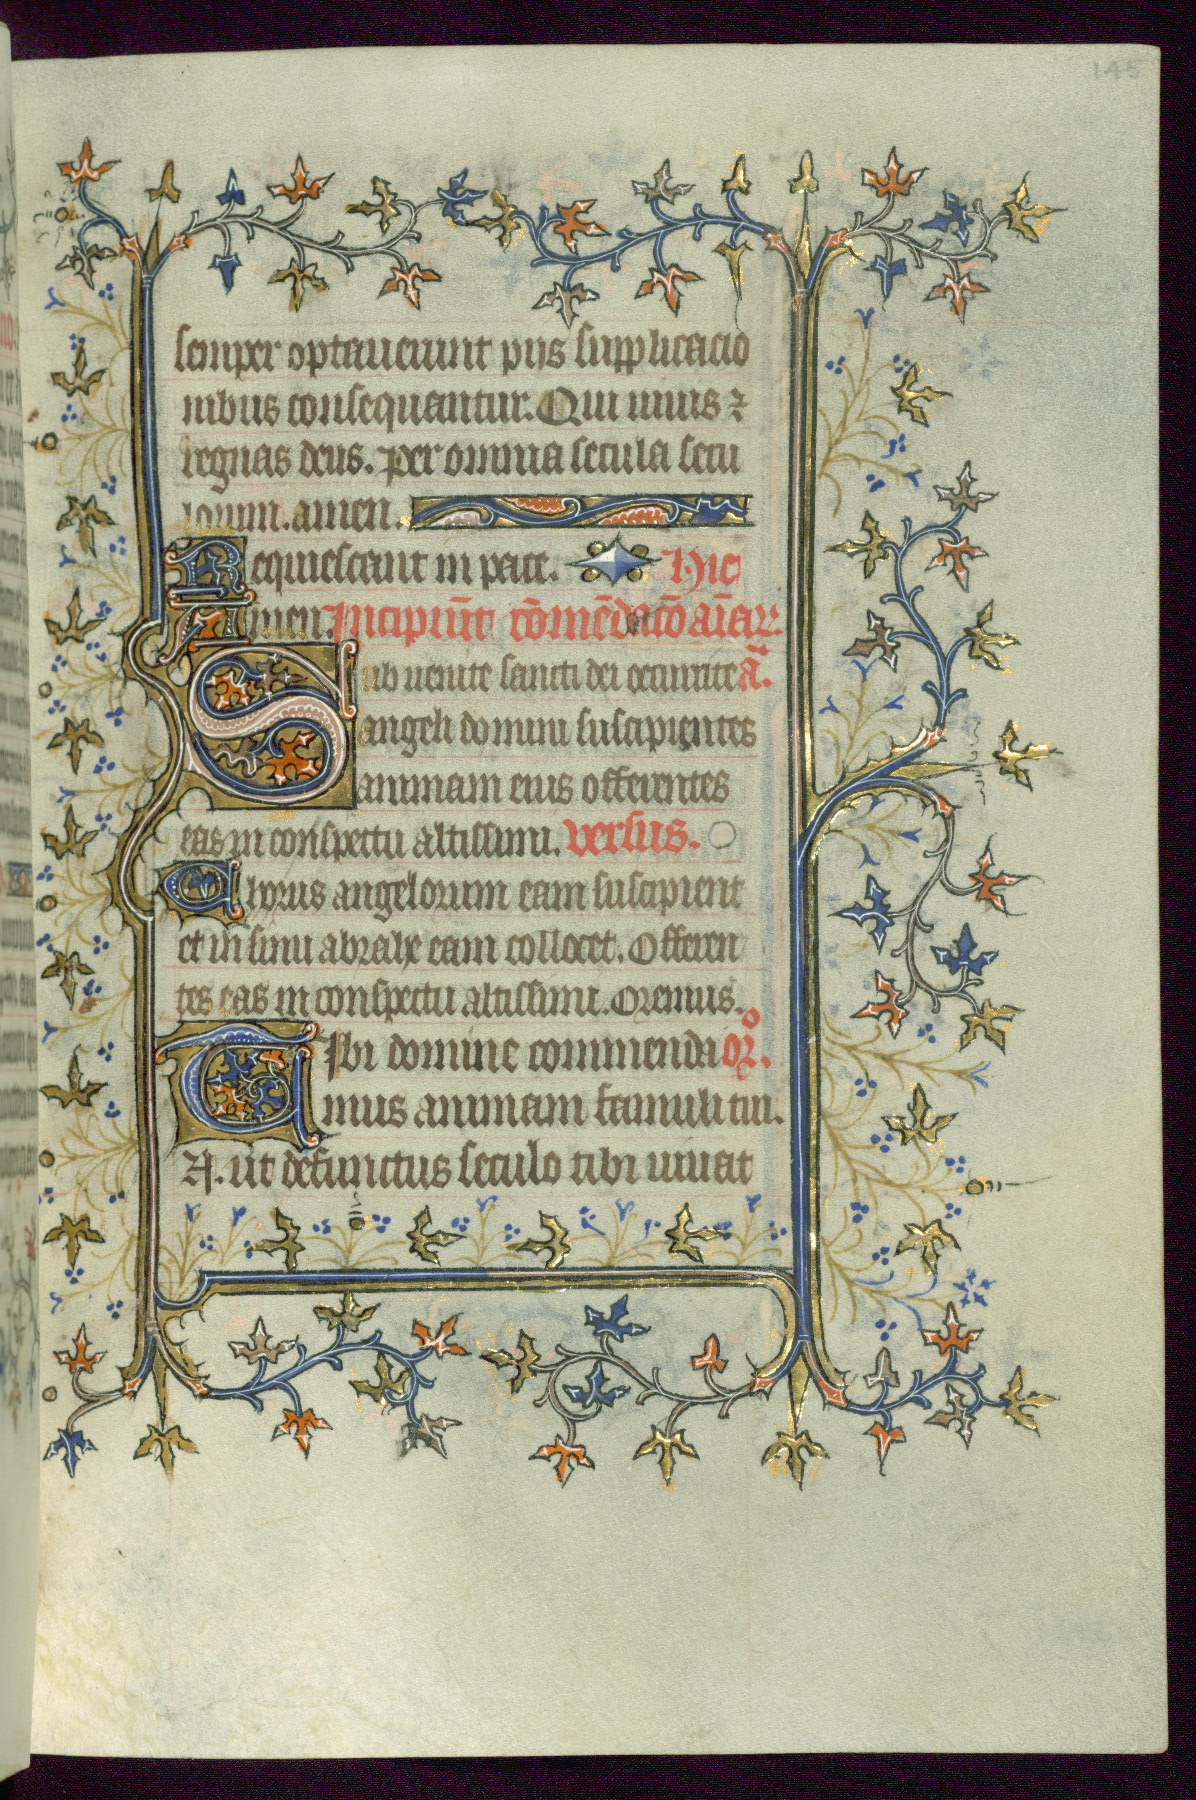 145
semper optauerunt piis supplicacio
nibus consequantur. Qui uiuis ⁊
regnas deus. Per omnia secula secu
lorum. amen.
Requiescant in pace. Hic
Amen. Incipiūt cōmēdacō aīar.
Sub uenite sancti dei occurrite a̅.
angeli domini suscipientes
animam eius offerentes
eas in conspectu altissimi. versus.
Chorus angelorum eam suscipient
et in sinu abrahe eam collocet. Offeren
tes eas in conspectu altissimi. Oremus.
Tibi domine commenda oꝛ.
mus animam famuli tui.
N. ut defunctus seculo tibi uiuat